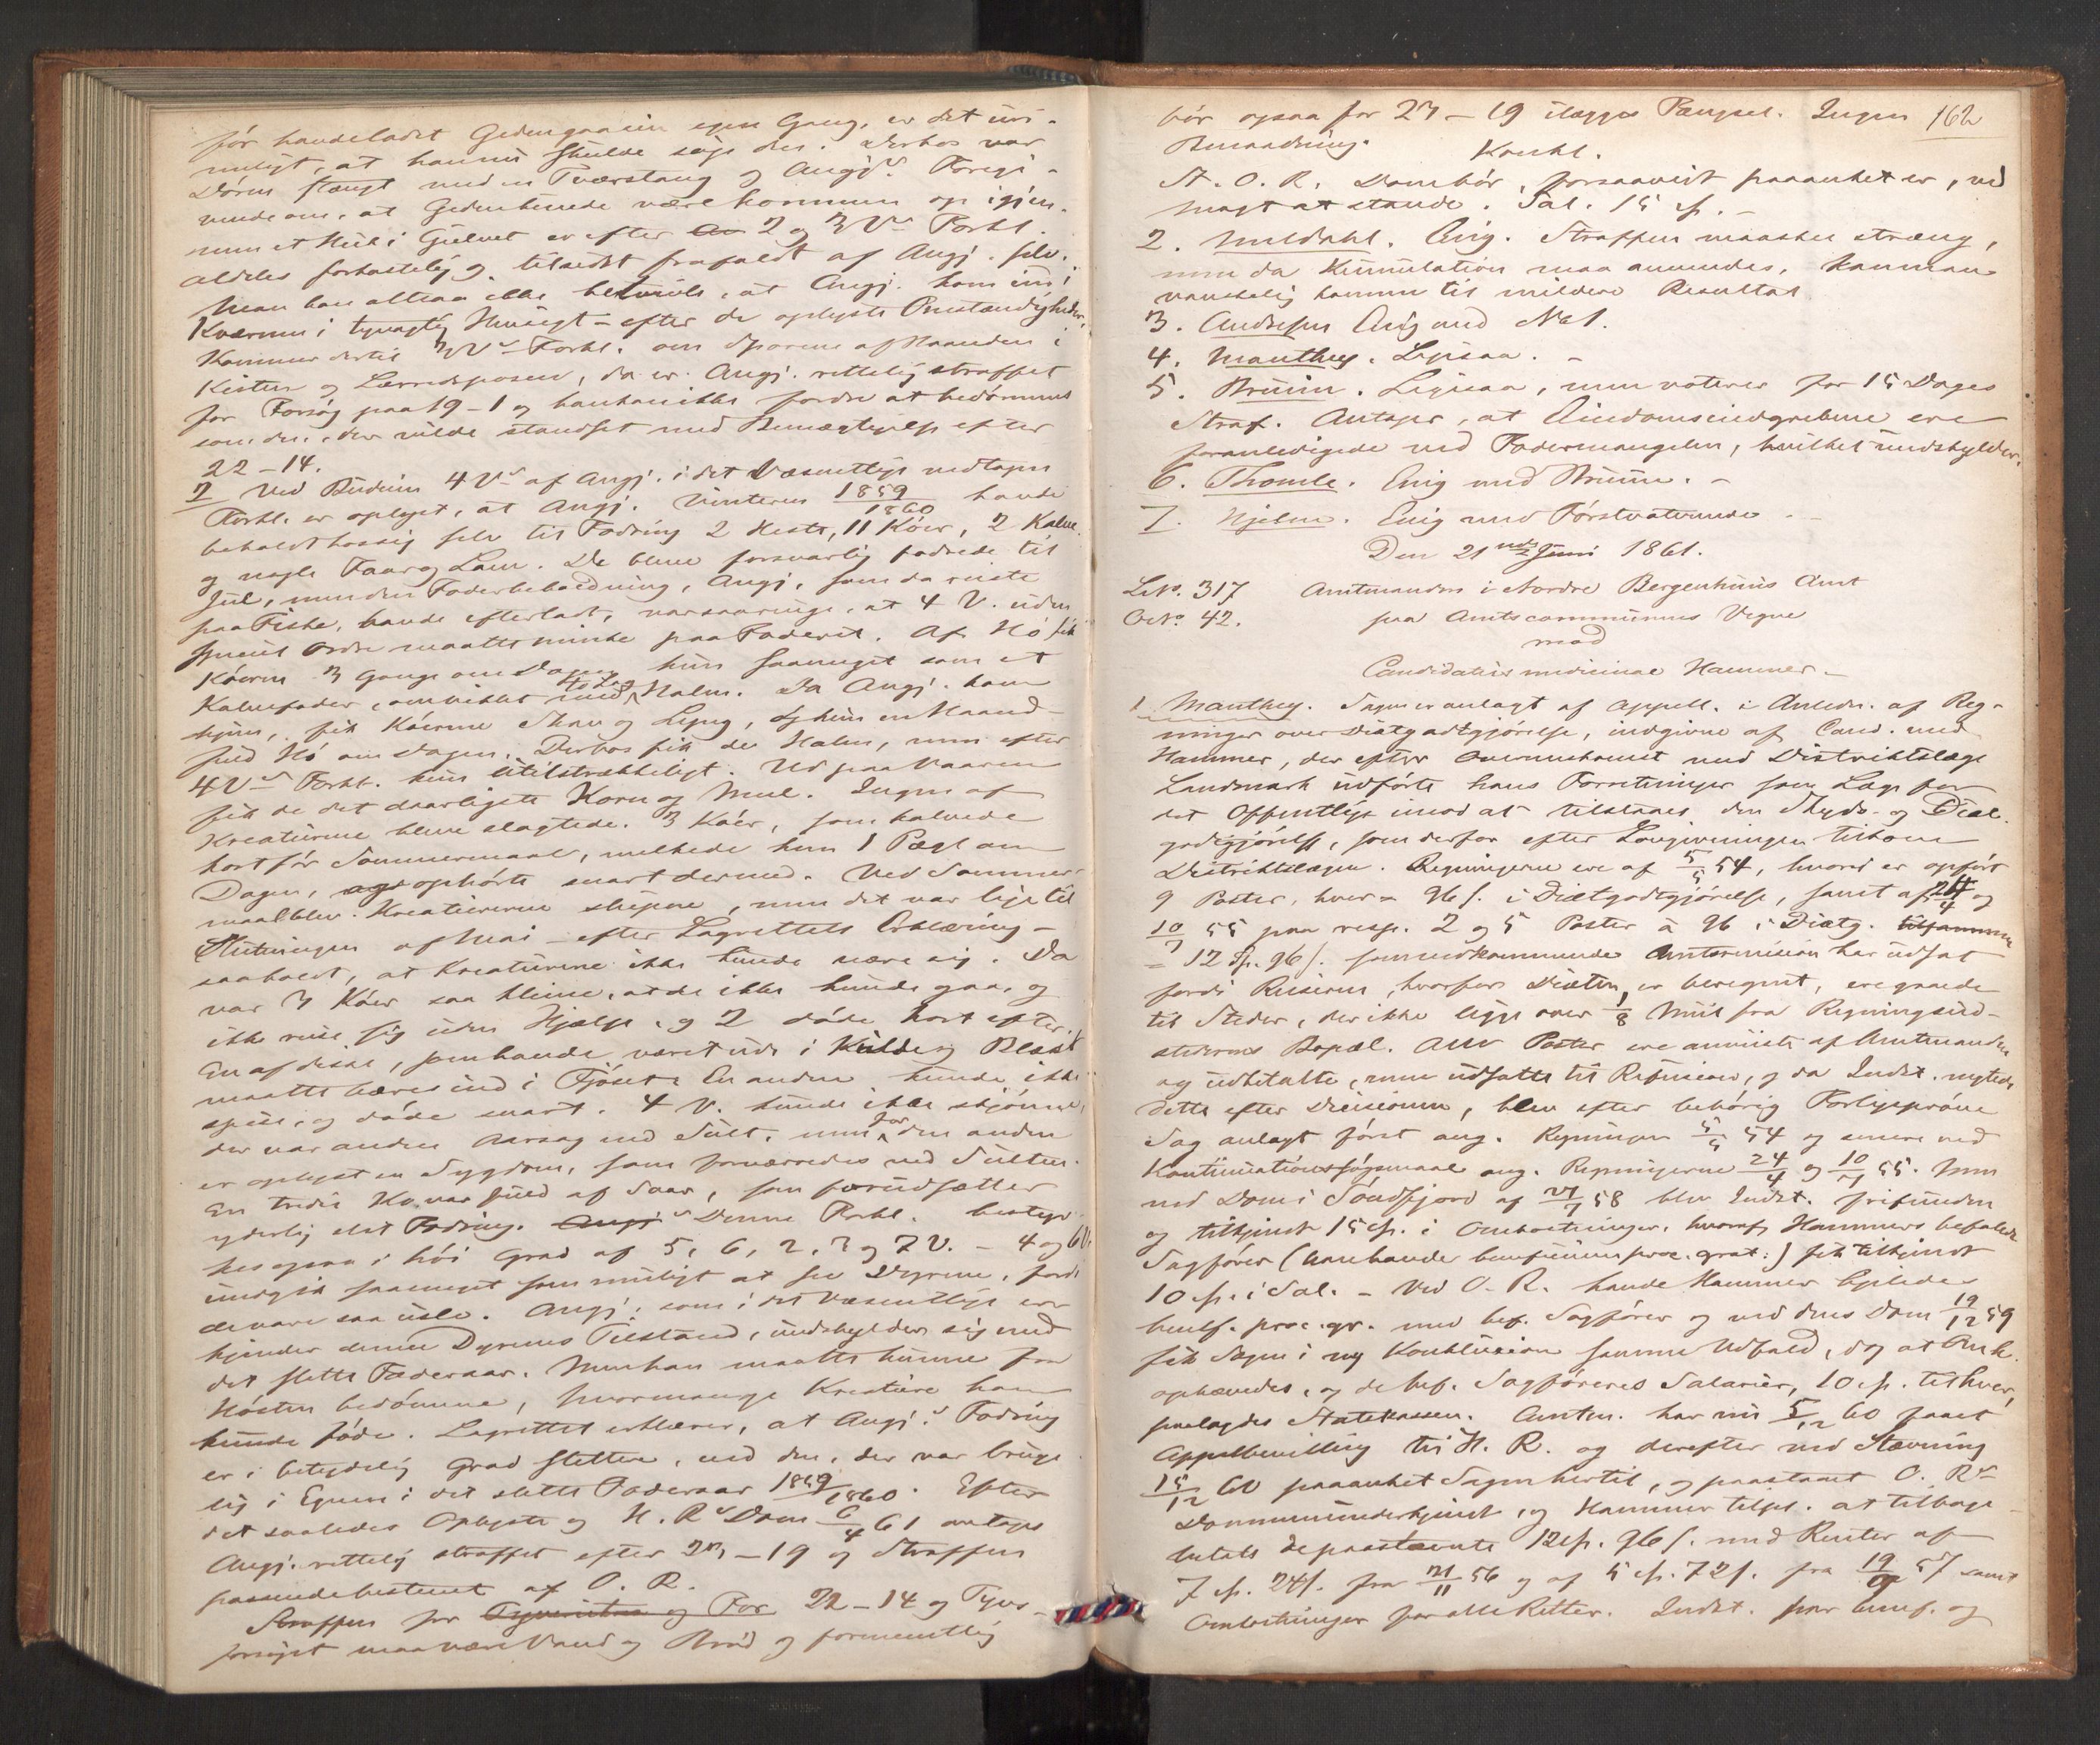 før havde ladt Geden gaa sin egen Gang, er det uri-
meligt, at han nu skulde søge den. Derhos var
Døren stængt med en Tværstang og Angj.s Foregi-
vende om, at Geden kunde være kommen op igjen-
nem et Hul i Gulvet er efter 2 og 3 V.s Forkl.
aldeles forkastelig og tilsidst frafaldt af Angj. selv.
Man kan altsaa ikke betvivle, at Angj. kom ind i
Kværnen i tyvagtig Hensigt - efter de oplyste Omstændigheder.
Kommer dertil 3 V.s Forkl. om Sporene af Haanden i
Kisten og Lærredsposen, da er Angj. rettelig straffet
for Forsøg paa 19-1 og han kan ikke fordre at bedømmes
som den, der vilde standset med Bemægtigelse efter
22-14.
2 Ved Budeien 4 V.s af Angj. i det Væsentlige vedtagne
Forkl. er oplyst, at Angj. Vinteren 1859/1860 havde
beholdt hos sig selv til Fodring 2 Heste, 11 Køer, 2 Kalve
og nogle Faar og Lam. De bleve forsvarlig fodrede til
Jul, men den Foderbeholdning, Angj., som da reiste
paa Fiske, havde efterladt, var saa ringe, at 4 V. uden
spent Ordre maatte minke paa Foderet. Af Hø fik
Køerne 3 Gange om Dagen kun saameget som et
Kalvefoder, omviklet med Halm. Da Angj. kom
hjem, fik Køerne Skav og Lyng, og kun en Haand-
fuld Hø om Dagen. Derhos fik de Halm, men efter
4 V.s Forkl. kun utilstrækkeligt. Ud paa Vaaren
fik de det daarligste Korn og Meel. Ingen af
Kreaturene bleve slagtede. 3 Køer, som kalvede
kort før Sommermaal, melkede kun 1 Pægl om
Dagen, ophørte snart dermed. Ved Sommer-
maal blev Kreaturerne slupne, men det var lige til
Slutningen af Mai - efter Lagrettets Erklæring -
saa koldt, at Kreaturene ikke kunde nære sig. Da
var 3 Køer saa kleine, at de ikke kunde gaa, og
ikke reise sig uden Hjælp, og 2 døde kort efter.
En af disse, som havde været ude i Kulde og Blæst
maatte bæres ind i Fjøset. En anden kunde ikke
spise, og døde snart. 4 V. kunde ikke skjønne,
der var anden Aarsag end Sult, men for den anden
er oplyst en Sygdom, som forværredes ved Sulten.
En tredie Ko var fuld af Saar, som forudsætter
yderlig slet Fodring. Denne Forkl. bestyr-
kes ogsaa i høi Grad af 5, 6, 2, 3 og 7 V. - 4 og 6 V.
undgik saameget som muligt at see Dyrene, fordi
de vare saa usle. Angj., som i det Væsentlige er-
kjender denne Dyrenes Tilstand, undskylder sig med
det slette Foderaar. Men han maatte kunne fra
Høsten bedømme, hvormange Kreature han
kunde føde. Lagrettet erklærer, at Angj.s Fodring
er i betydelig Grad slettere, end den, der var bruge-
lig i Egnen i det slette Foderaar 1859/1860. Efter
det saaledes Oplyste og H. R.s Dom 6/4 61 antages
Angj. rettelig straffet efter 23-19 og Straffen
passende bestemt af O. R.
Straffen for 22-14 og Tyvs-
forsøget maa være Vand og Brød og formentlig
bør ogsaa for 23-19 ilægges Fængsel. Ingen 162
Benaadning.
Konkl.
St. O. R. Dom bør, forsaavidt paaanket er, ved
Magt at stande. Sal. 15 Sp. -
2. Muldahl. Enig. Straffen maaskee streng,
men da Kumulation maa anvendes, kan man
vanskelig komme til mildere Resultat
3. Andresen Enig med No 1.
4. Manthey. Ligesaa. -
5. Bruun. Ligesaa, men voterer for 15 Dages
Straf. Antager, at Eiendomsindgrebene ere
foranledigede ved Fodermangelen, hvilket undskylder.
6. Thomle. Enig med Bruun. -
7. Hjelm. Enig med Førstvoterende. -
Den 21nde Juni 1861.
LNo. 317 Amtmanden i Nordre Bergenhuus Amt
No. 42. paa Amtscommunens Vegne
mod
Candidatus medicinae Hammer.
1 Manthey. Sagen er anlagt af Appell. i Anledn. af Reg-
ninger over Diætgodtgjørelse, indgivne af Cand. med.
Hammer, der efter Overenskomst med Distriktslæge
Landmark udførte hans Forretninger som Læge for
det Offentlige imod at tilstaaes den Skyds- og Diæt-
godtgjørelse, som derfor efter Lovgivningen tilkom
Distriktslægen. Regningerne ere af 5/5 54, hvori er opført
9 Poster, hver a 96 s. i Diætgodtgjørelse, samt af 24/4 og
10/7 55 paa resp. 2 og 5 Poster à 96 s Diætg.
= 12 Sp. 96 s. som vedkommende Amtsrevision har udsat
fordi Reiserne, hvorfor Diæten er beregnet, ere gjorde
til Steder, der ikke ligge over 1/8 Miil fra Regningsud-
stederens Bopæl. Alle Poster ere anviste af Amtmanden
og udbetalte, men udsatte til Refusion, og da Indst. negtede
dette efter Decisionen, blev efter behørig Forligsprøve
Sag anlagt først ang. Regningen 5/5 54 og senere ved
Kontinuationssøgsmaal ang. Regningerne 24/4 og 10/7 55. Men
ved Dom i Søndfjord af 21/7 58 blev Indst. frifunden
og tilkjendt 15 Sp. i Omkostninger, hvoraf Hammers befalede
Sagfører (han havde beneficium proc. grat:) fik tilkjendt
10 Sp. i Sal. - Ved O. R. havde Hammer ligeledes
benef. proc. gr. med bef. Sagfører og ved dens Dom 19/12 59
fik Sagen i ny Konklusion samme Udfald, dog at Omk.
ophævedes, og de bef. Sagføreres Salarier, 10 Sp. til hver,
paalagdes Statskassen. Amtm. har nu 5/12 60 faaet
Appelbevilling til H. R. og derefter ved Stævning
15/12 60 paaanket Sagen hertil, og paastaaet O. R.s
Dom underkjendt, og Hammer tilpl. at tilbage-
betale de paastævnte 12 Sp. 96 s. med Renter af
7 Sp. 24 s. fra 21/11 56 og af 5 Sp. 72 s. fra 57 samt
Omkostninger for alle Retter. Indst. har benef. og